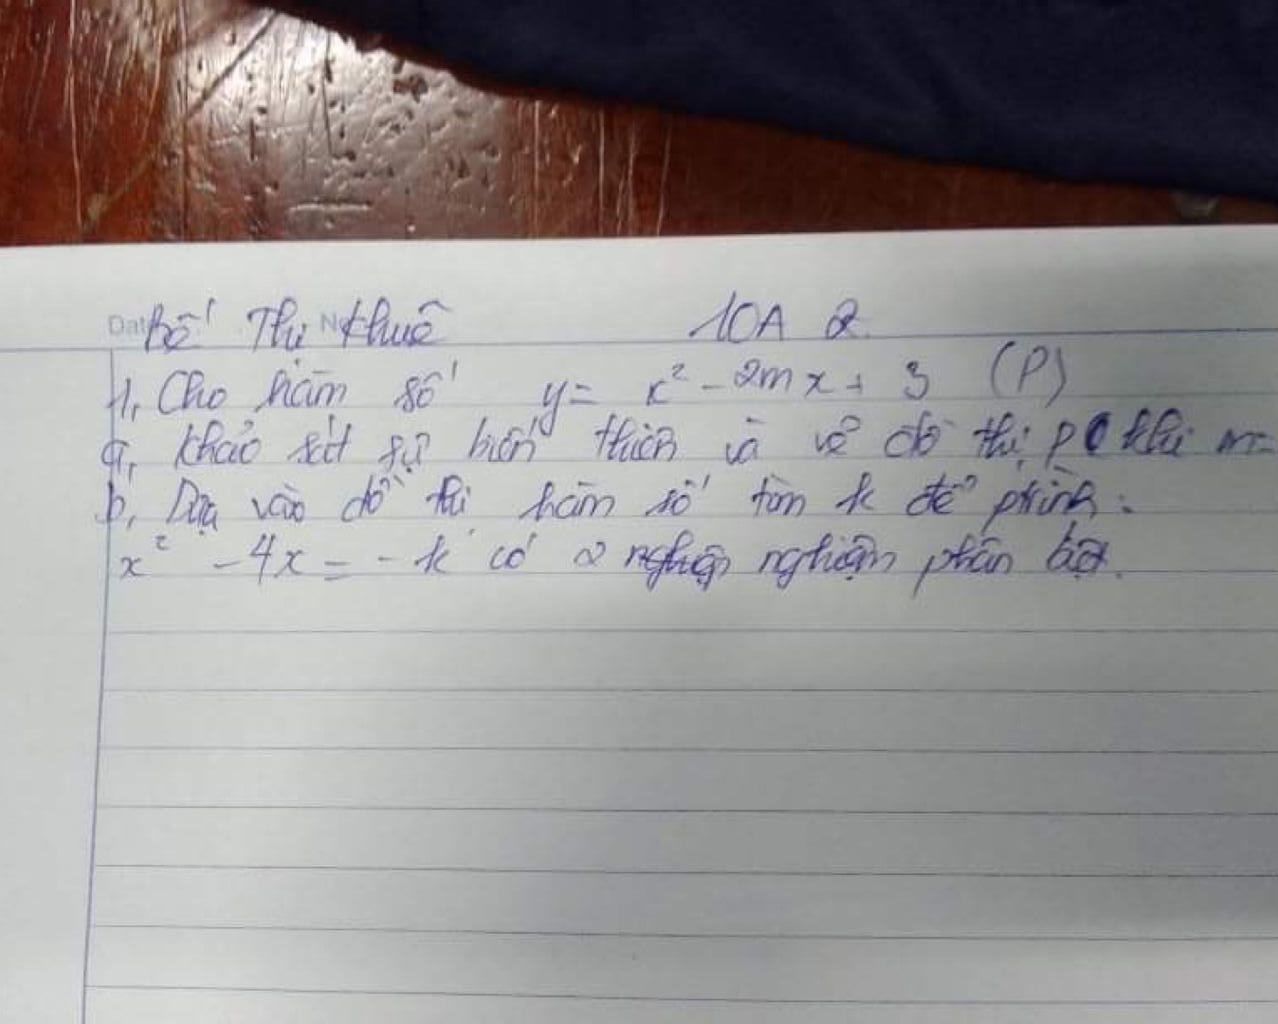 Bế Thị Khuê 10A 2
1, Cho hàm số y = x² - 2mx + 3 (P)
a, Khảo sát sự biến thiên và vẽ đồ thị P khi m=
b, Dựa vào đồ thị hàm số tìm k để ptrình:
x² - 4x = - k có 2 nghiệm phân biệt.